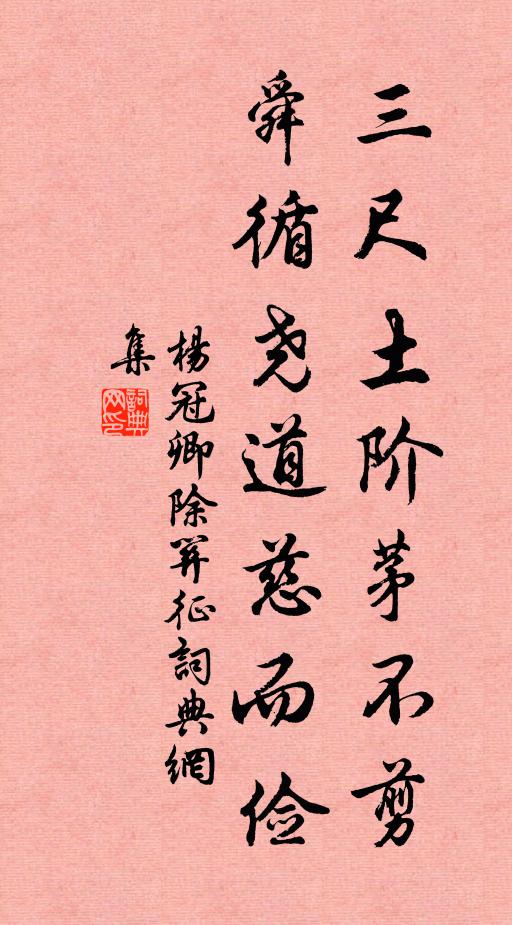 三尺土阶茅不剪
舜循尧道慈而俭
杨冠卿除筭征詞典網
集
詞典网印